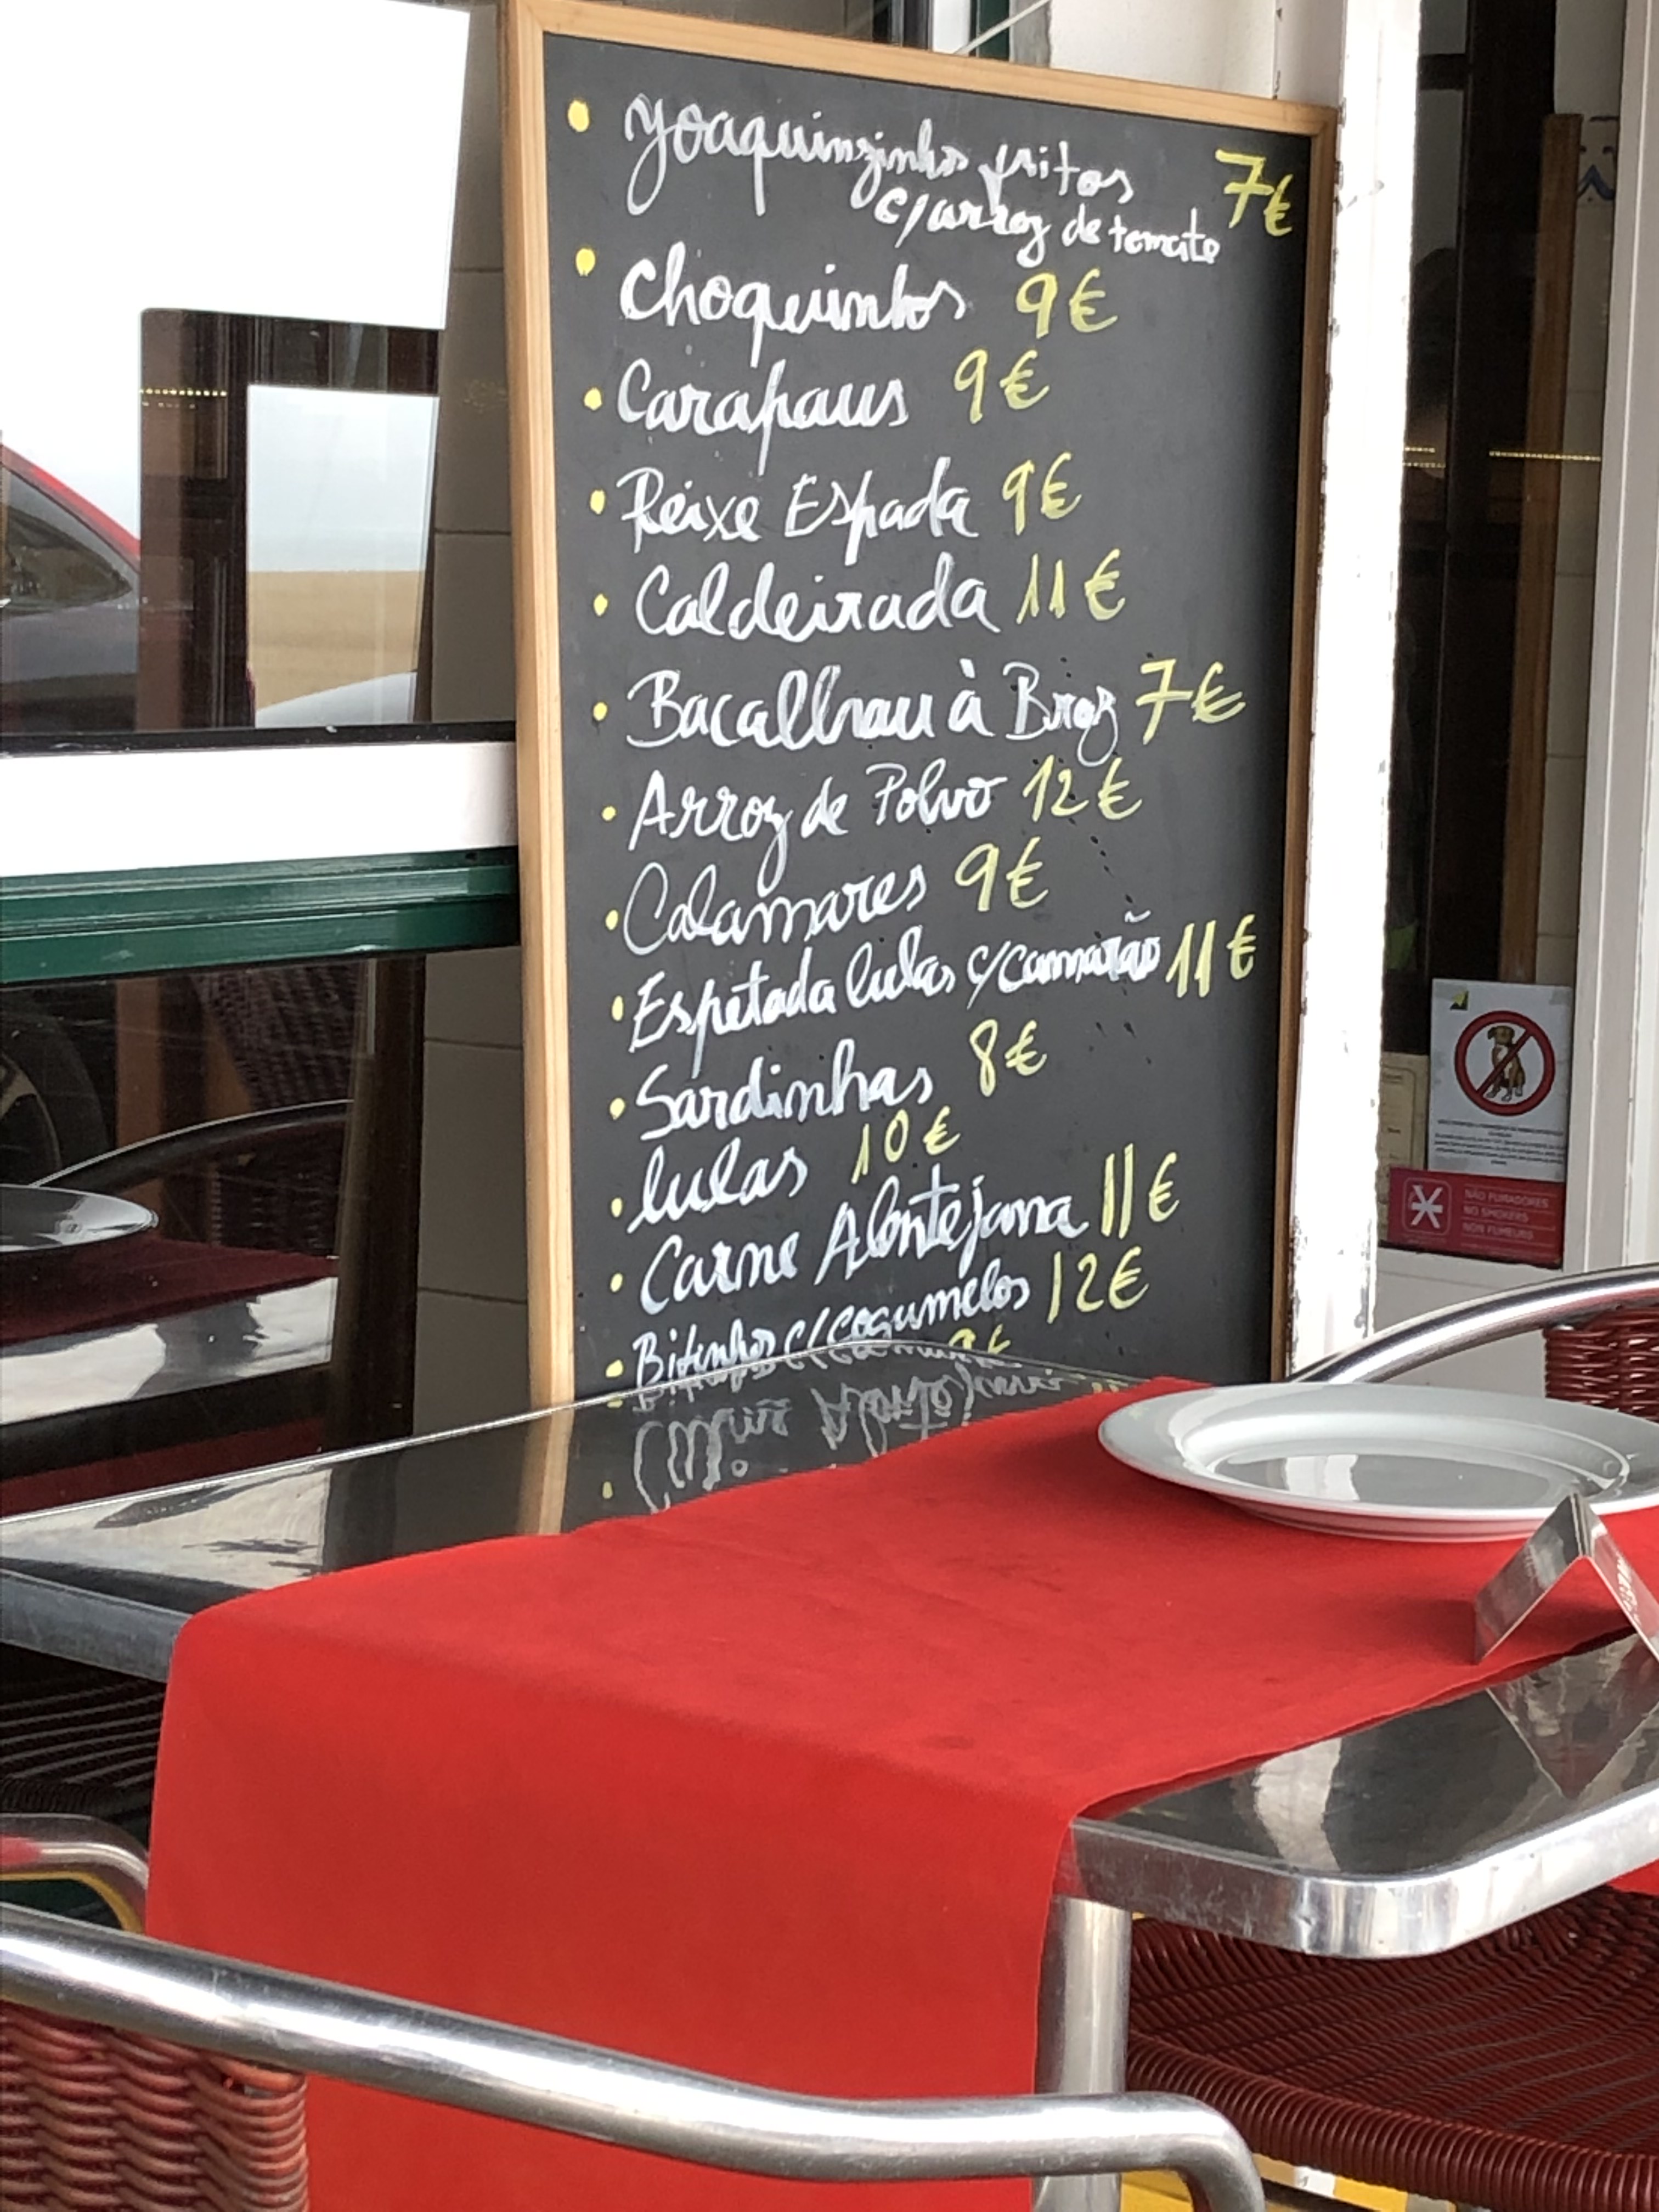 Joaquinzinhos fritos 7€
c/arroz de tomate
Choquinhos 9€
Carapaus 9€
Peixe Espada 9€
Caldeirada 11€
Bacalhau à Braz 7€
Arroz de Polvo 12€
Calamares 9€
Espetada lulas c/camarão 11€
Sardinhas 8€
lulas 10€
Carne Alentejana 11€
Bifinhos c/cogumelos 12€
NÃO FUMADORES
NO SMOKERS
NON FUMEURS